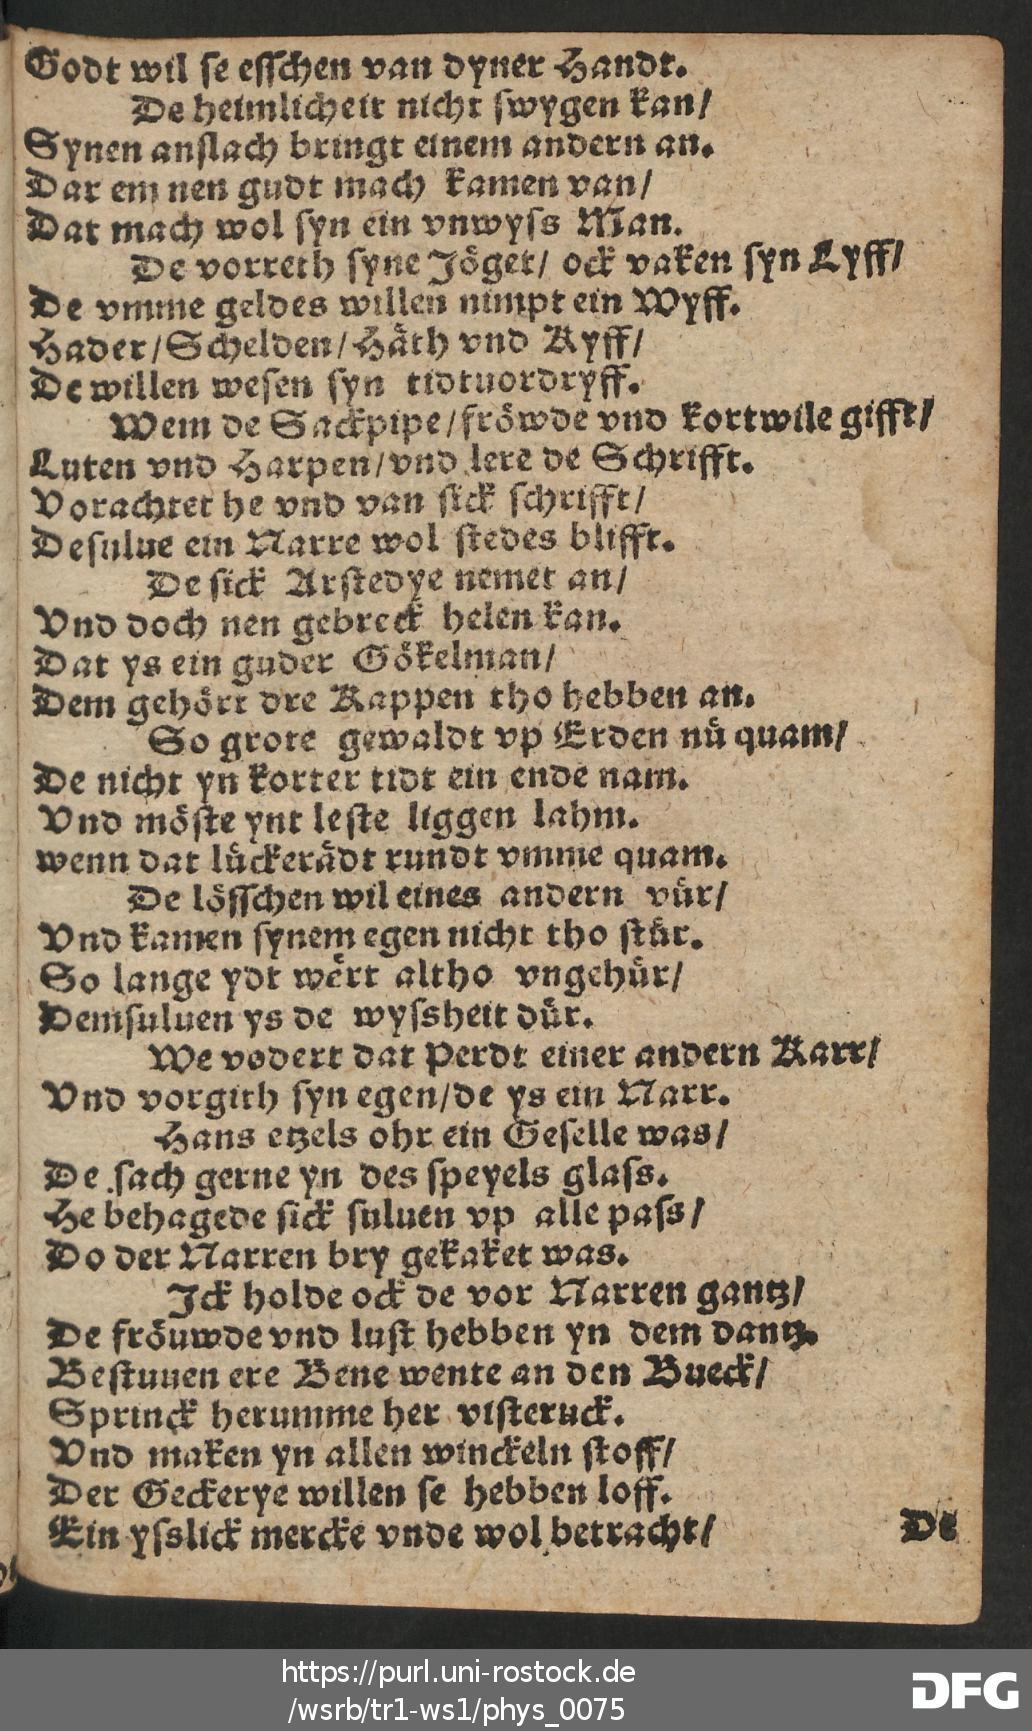 Godt wil se esschen van dyner Handt.
De heimlicheit nicht swygen kan/
Synen anslach bringt einem andern an.
Dar em nen gudt mach kamen van/
Dat mach wol syn ein vnwyss Man.
De vorreth syne Jöget/ ock vaken syn Lyff/
De vmme geldes willen nimpt ein Wyff.
Hader/Schelden/Häth vnd Kyff/
De willen wesen syn tidtuordryff.
Wem de Sackpipe/fröwde vnd kortwile gifft/
Luten vnd Harpen/vnd lere de Schrifft.
Vorachtet he vnd van sick schrifft/
Desulue ein Narre wol stedes blifft.
De sick Arstedye nemet an/
Vnd doch nen gebreck helen kan.
Dat ys ein guder Gökelman/
Dem gehört dre Kappen tho hebben an.
So grote gewaldt vp Erden nü quam/
De nicht yn korter tidt ein ende nam.
Vnd möste ynt leste liggen lahm.
wenn dat lückerädt rundt vmme quam.
De lösschen wil eines andern vür/
Vnd kamen synem egen nicht tho stür.
So lange ydt wert altho vngehür/
Demsuluen ys de wyssheit dür.
We vodert dat Perdt einer andern Karr/
Vnd vorgith syn egen/de ys ein Narr.
Hans etzels ohr ein Geselle was/
De sach gerne yn des speyels glass.
He behagede sick suluen vp alle pass/
Do der Narren bry gekaket was.
Jck holde ock de vor Narren gantz/
De fröuwde vnd lust hebben yn dem dantz.
Bestuuen ere Bene wente an den Bueck/
Sprinck herumme her visteruck.
Vnd maken yn allen winckeln stoff/
Der Geckerye willen se hebben loff.
Ein ysslick mercke vnde wol betracht/
De
https://purl.uni-rostock.de
/wsrb/tr1-ws1/phys_0075
DFG